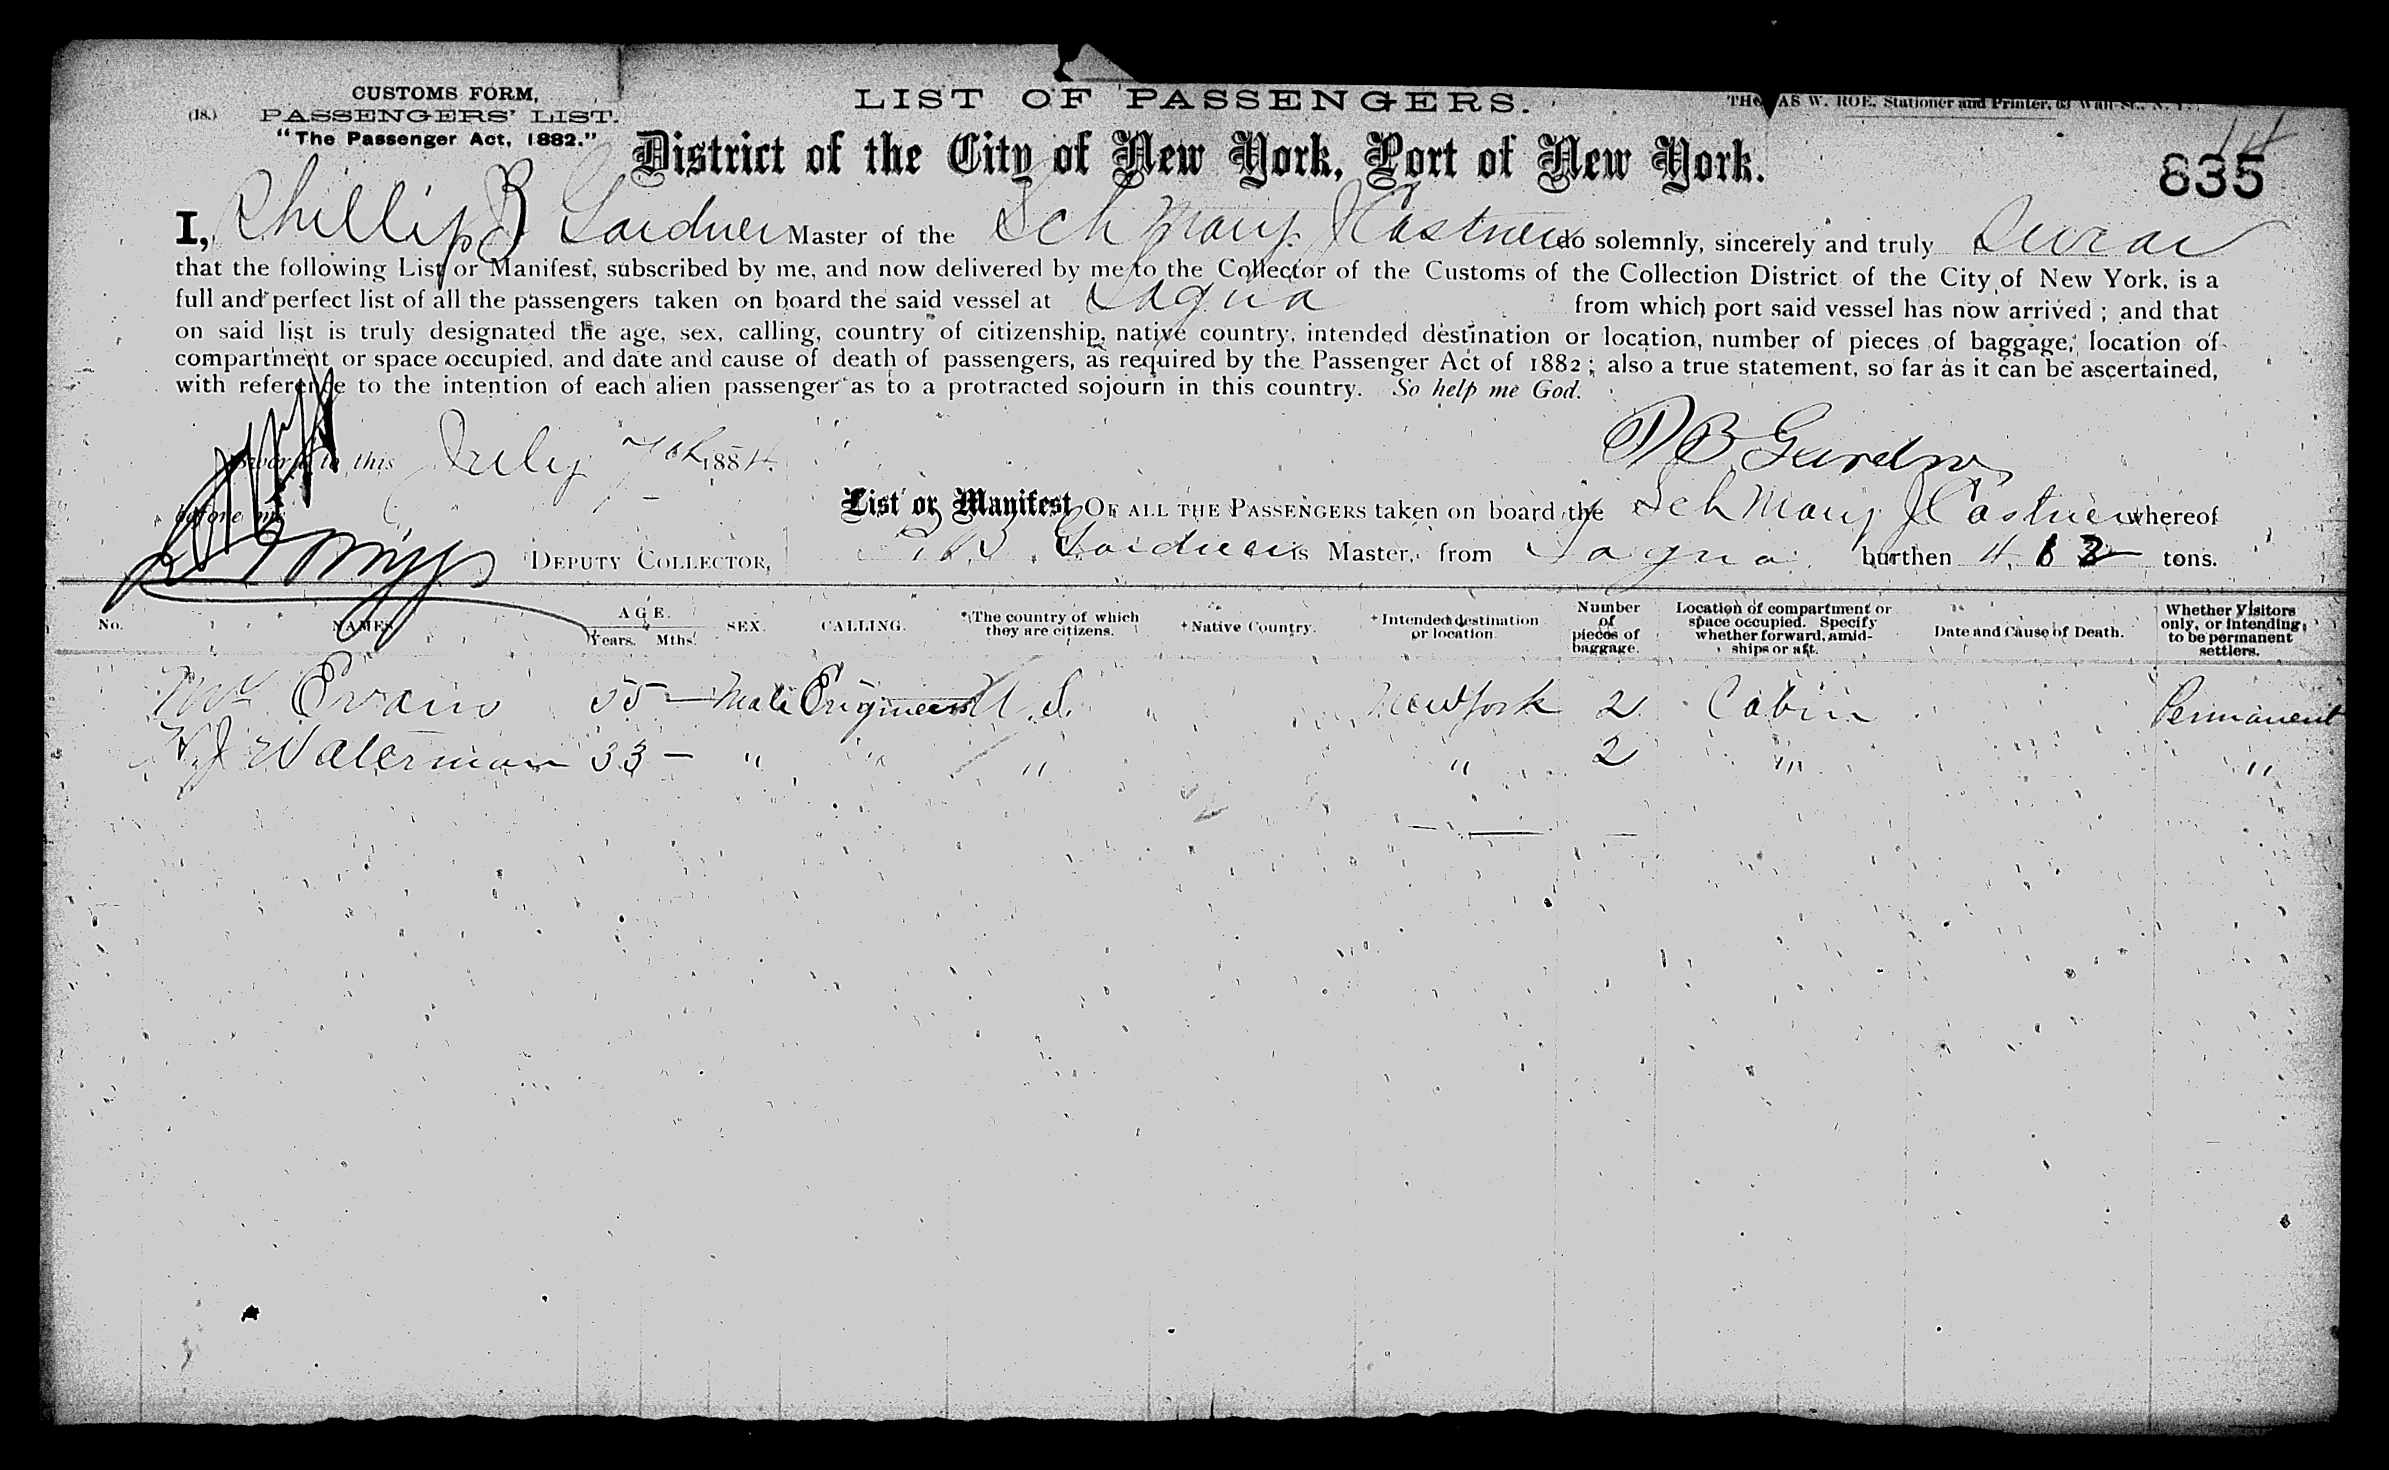 CUSTOMS FORM,
(18.) PASSENGERS' LIST.
"The Passenger Act, 1882."
LIST OF PASSENGERS.
THOMAS W. ROE, Stationer and Printer, 63 Wall St., N. Y.
District of the City of New York, Port of New York.
14
635
I, Phillip B Gardner Master of the Sch Mary J Castner do solemnly, sincerely and truly Swear
that the following List or Manifest, subscribed by me, and now delivered by me to the Collector of the Customs of the Collection District of the City of New York, is a
full and perfect list of all the passengers taken on board the said vessel at Sagua from which port said vessel has now arrived; and that
on said list is truly designated the age, sex, calling, country of citizenship, native country, intended destination or location, number of pieces of baggage, location of
compartment or space occupied, and date and cause of death of passengers, as required by the Passenger Act of 1882; also a true statement, so far as it can be ascertained,
with reference to the intention of each alien passenger as to a protracted sojourn in this country. So help me God.
Sworn to this July 7th 1884.
P B Gardner
before me
List or Manifest OF ALL THE PASSENGERS taken on board the Sch Mary J Castner whereof
DEPUTY COLLECTOR,
P. B. Gardner is Master, from Sagua burthen tons.
No.
NAMES
AGE.
Years. Mths.
SEX.
CALLING.
*The country of which they are citizens.
+Native Country.
+Intended destination or location.
Number of pieces of baggage.
Location of compartment or space occupied. Specify whether forward, amidships or aft.
Date and Cause of Death.
Whether Visitors only, or intending to be permanent settlers.
Evans 55 — Male Engineer U.S. " New York 2 Cabin Permanent
Waterman 33 — " " " " 2 " "